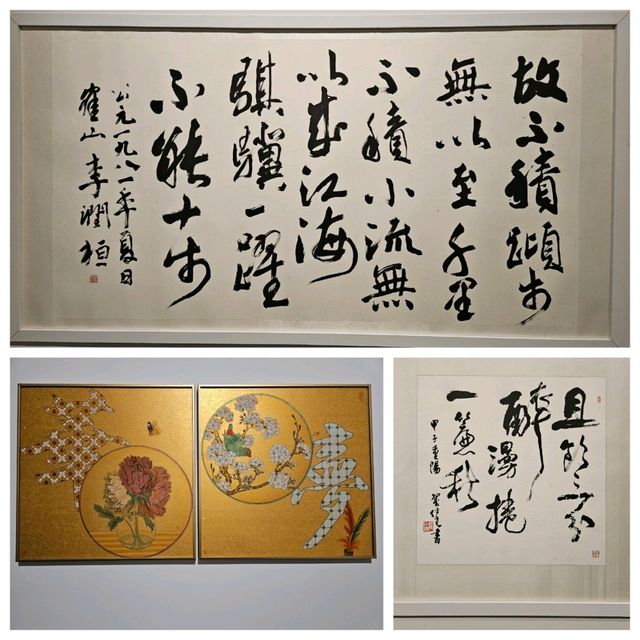 故不積蹞步
無以至千里
不積小流無
以成江海
騏驥一躍
不能十步
公元一九八一年夏日
鶴山李潤桓
且分
醉漫捲
一簾秋
甲子重陽
書